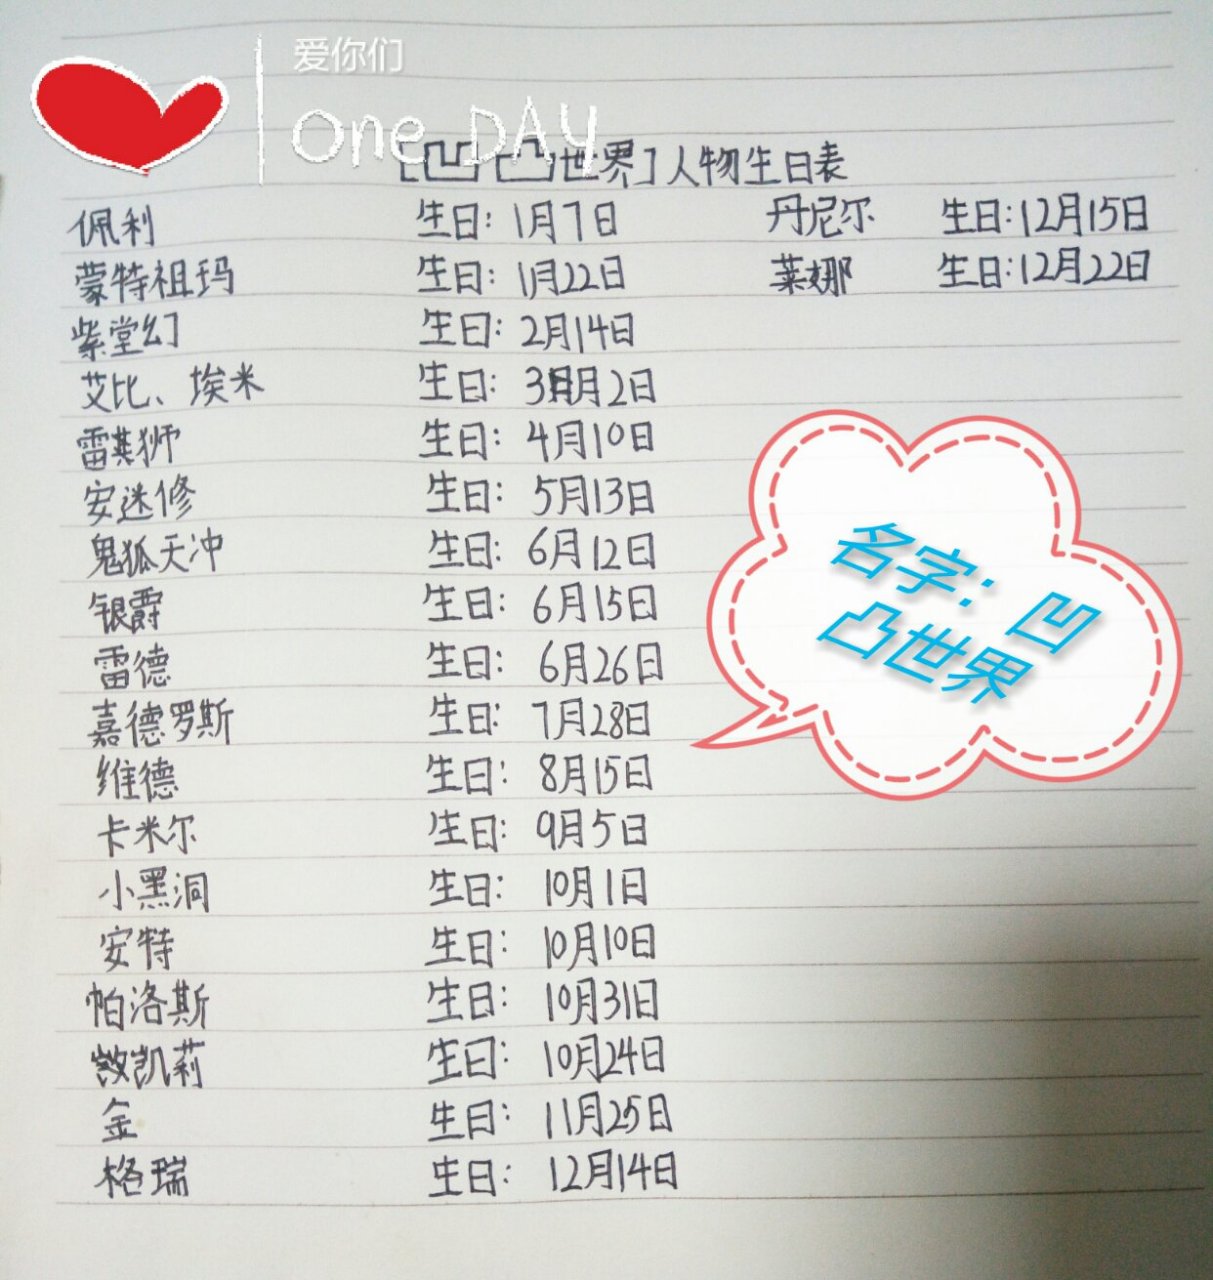 爱你们
one DAY
[凹凸世界]人物生日表
佩利 生日:1月7日 丹尼尔 生日:12月15日
蒙特祖玛 生日:1月22日 莱娜 生日:12月22日
紫堂幻 生日:2月14日
艾比、埃米 生日:3月2日
雷其狮 生日:4月10日
安迷修 生日:5月13日
鬼狐天冲 生日:6月12日
银爵 生日:6月15日
雷德 生日:6月26日
嘉德罗斯 生日:7月28日
维德 生日:8月15日
卡米尔 生日:9月5日
小黑洞 生日:10月1日
安特 生日:10月10日
帕洛斯 生日:10月31日
凯莉 生日:10月24日
金 生日:11月25日
格瑞 生日:12月14日
名字:凹
凸世界